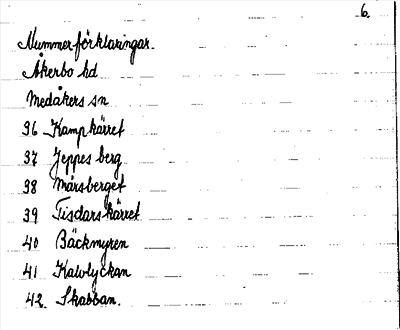 6.
Nummerförklaringar.
Åkerbo hd
Medåkers sn
36 Kampkärret
37 Jeppes berg
38 Mårsberget
39 Tisdarskärret
40 Bäckmyren
41 Kalvlyckan
42 Skabban.